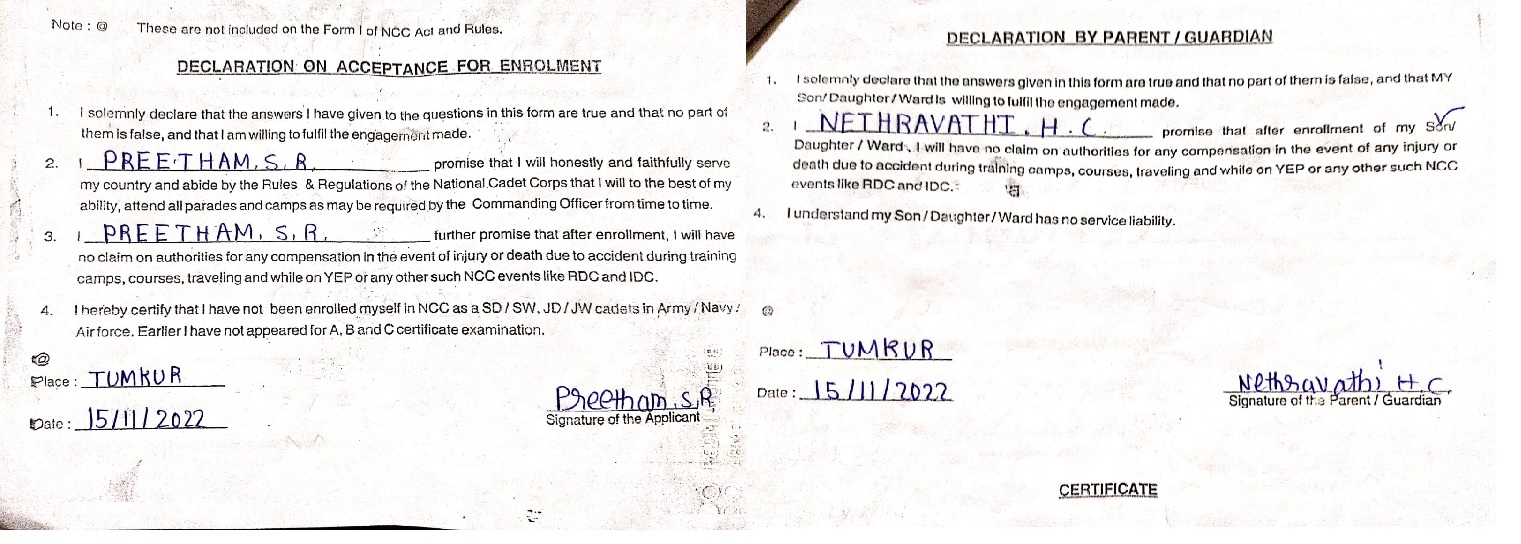 Note : @ These are not included on the Form I of NCC Act and Rules.
DECLARATION ON ACCEPTANCE FOR ENROLMENT
1. I solemnly declare that the answers I have given to the questions in this form are true and that no part of
them is false, and that I am willing to fulfil the engagement made.
2. I PREETHAM. S. R. promise that I will honestly and faithfully serve
my country and abide by the Rules & Regulations of the National Cadet Corps that I will to the best of my
ability, attend all parades and camps as may be required by the Commanding Officer from time to time.
3. I PREETHAM. S. R. further promise that after enrollment, I will have
no claim on authorities for any compensation in the event of injury or death due to accident during training
camps, courses, traveling and while on YEP or any other such NCC events like RDC and IDC.
4. I hereby certify that I have not been enrolled myself in NCC as a SD / SW, JD / JW cadets in Army / Navy /
Airforce. Earlier I have not appeared for A, B and C certificate examination.
@
Place : TUMKUR
Date : 15/11/2022
Preetham. S.R.
Signature of the Applicant
DECLARATION BY PARENT / GUARDIAN
1. I solemnly declare that the answers given in this form are true and that no part of them is false, and that MY
Son/ Daughter / Ward is willing to fulfil the engagement made.
2. I NETHRAVATHI. H. C. promise that after enrollment of my Son/
Daughter / Ward, I will have no claim on authorities for any compensation in the event of any injury or
death due to accident during training camps, courses, traveling and while on YEP or any other such NCC
events like RDC and IDC.
4. I understand my Son / Daughter / Ward has no service liability.
@
Place : TUMKUR
Date : 15/11/2022
Nethravathi H. C.
Signature of the Parent / Guardian
CERTIFICATE